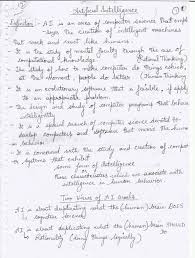 Artificial Intelligence
Definition - AI is an area of computer science that emph
the creation of intelligent machines
that work and react like humans.
It is the study of mental faculty through the use of
computational (Rational Thinking)
The study of how to make computers do things which,
at that moment, people do better (Human Thinking
It is an evolutionary software that is feasible, if apply
to an appropriate problem.
The design and study of computer programs that behave
intelligently
It is a branch of computer science devoted to
develop computers and that work more like human
being
It is concerned with the study and creation of comput
er systems that exhibit
some form of intelligence
characteristics which we associate with
intelligence in human behavior.
Two Views of AI Goals
AI is about duplicating what the (human) brain DOES
(computer science)
AI is about duplicating what the (human) brain SHOULD
Rationality (doing things logically)